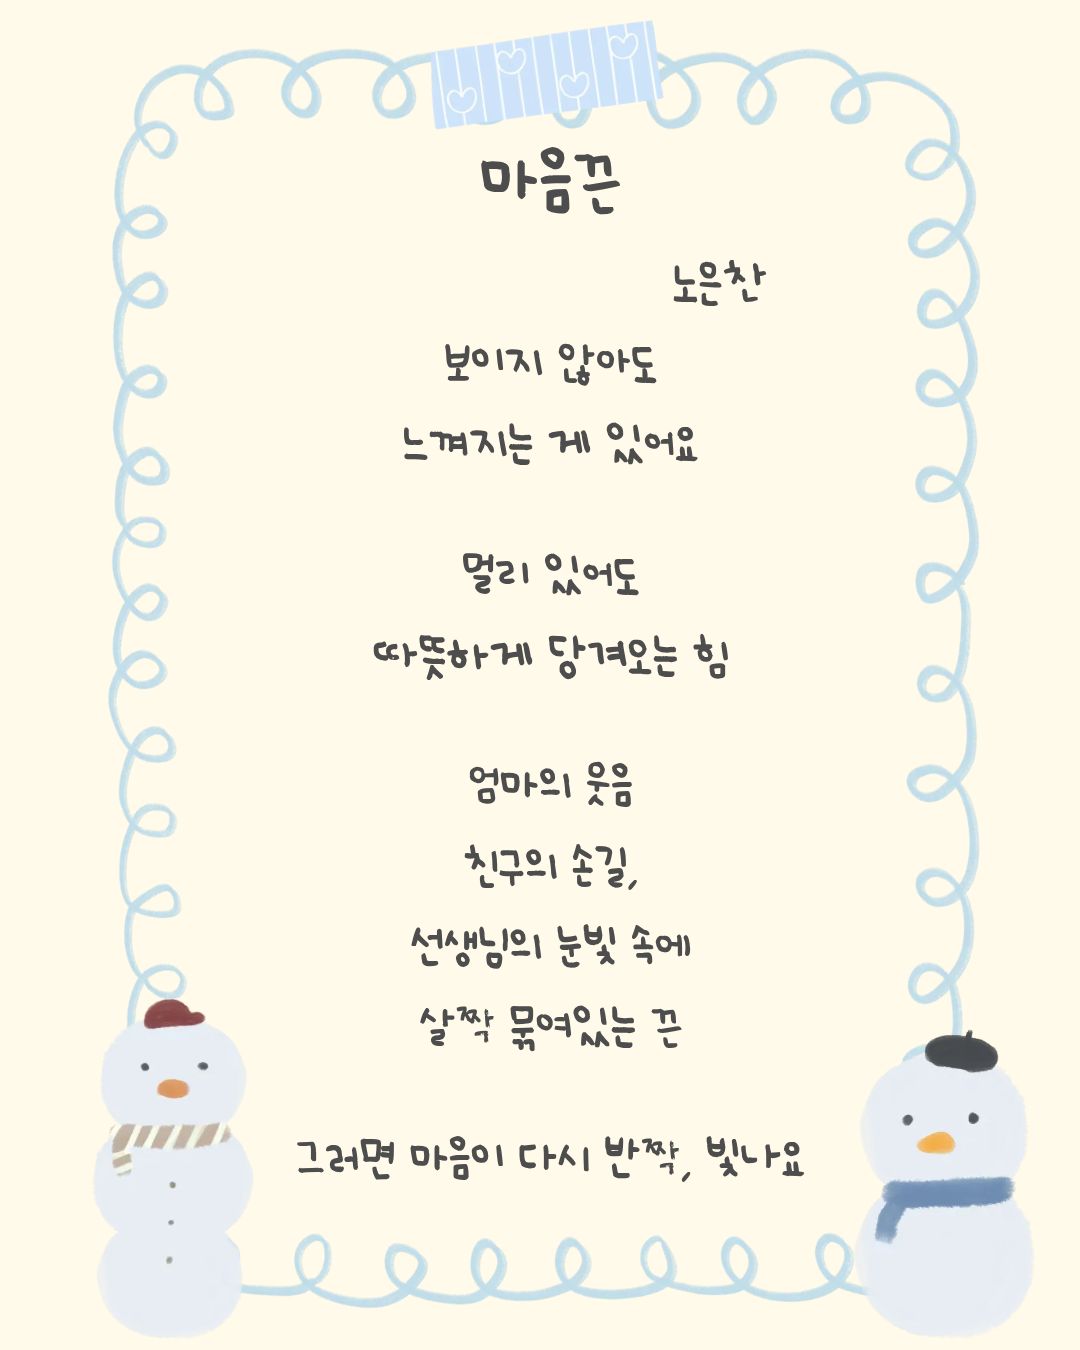 마음끈
노은찬
보이지 않아도
느껴지는 게 있어요
멀리 있어도
따뜻하게 당겨오는 힘
엄마의 웃음
친구의 손길,
선생님의 눈빛 속에
살짝 묶여있는 끈
그러면 마음이 다시 반짝, 빛나요